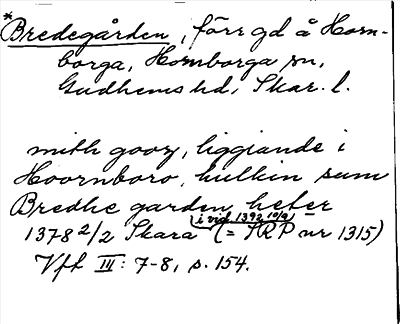 *Bredegården, förr gd å Horn-
borga, Hornborga sn,
Gudhems hd, Skar. l.
mith goorz, liggiande i
Hoornboro, hulkin sum
Bredhe garden heter
i vid. 1392 10/9
1378 2/2 Skara (= SRP nr 1315)
Vff III: 7-8, s. 154.